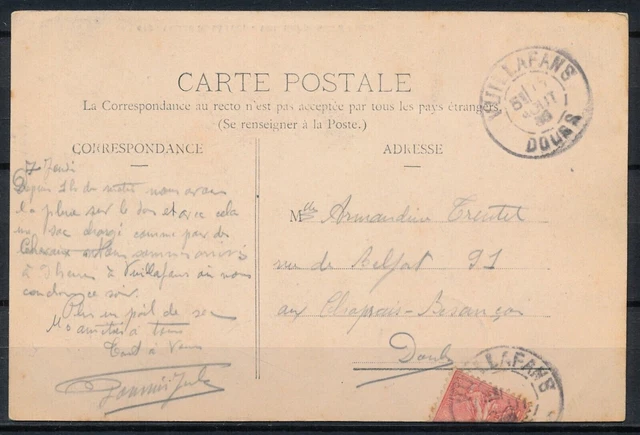 CARTE POSTALE
La Correspondance au recto n'est pas acceptée par tous les pays étrangers
(Se renseigner à la Poste.)
CORRESPONDANCE
Jeudi
Depuis 1h du matin nous avons
la pluie sur le dos et avec cela
un sac chargé comme par des
à 9 heures à Vuillafans où nous
couchons ce soir.
Plus un poil de sec
amitiés à tous
Tout à vous
ADRESSE
Mlle Armandine Treutel
rue de Belfort 91
aux Chaprais-Besançon
Doubs
VUILLAFANS
AOUT
DOUBS
LLAFANS